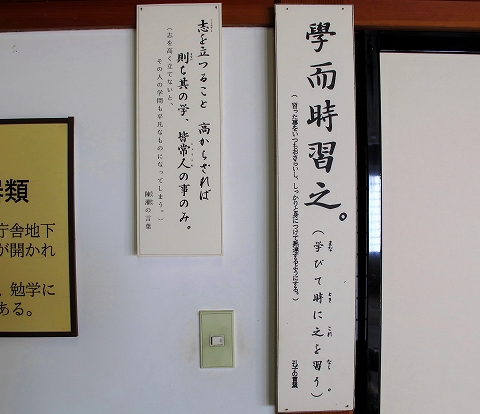 學而時習之。(学びて時に之を習う)
(習った事をいつもおさらいし、しっかりと身につけて熟達するようにする。)
孔子の言葉
志を立つること 高からざれば
則ち其の学、皆常人の事のみ。
(志を高く立てないと、
その人の学問も平凡なものになってしまう。)
の言葉
類
庁舎地下
が開かれ
、勉学に
ある。